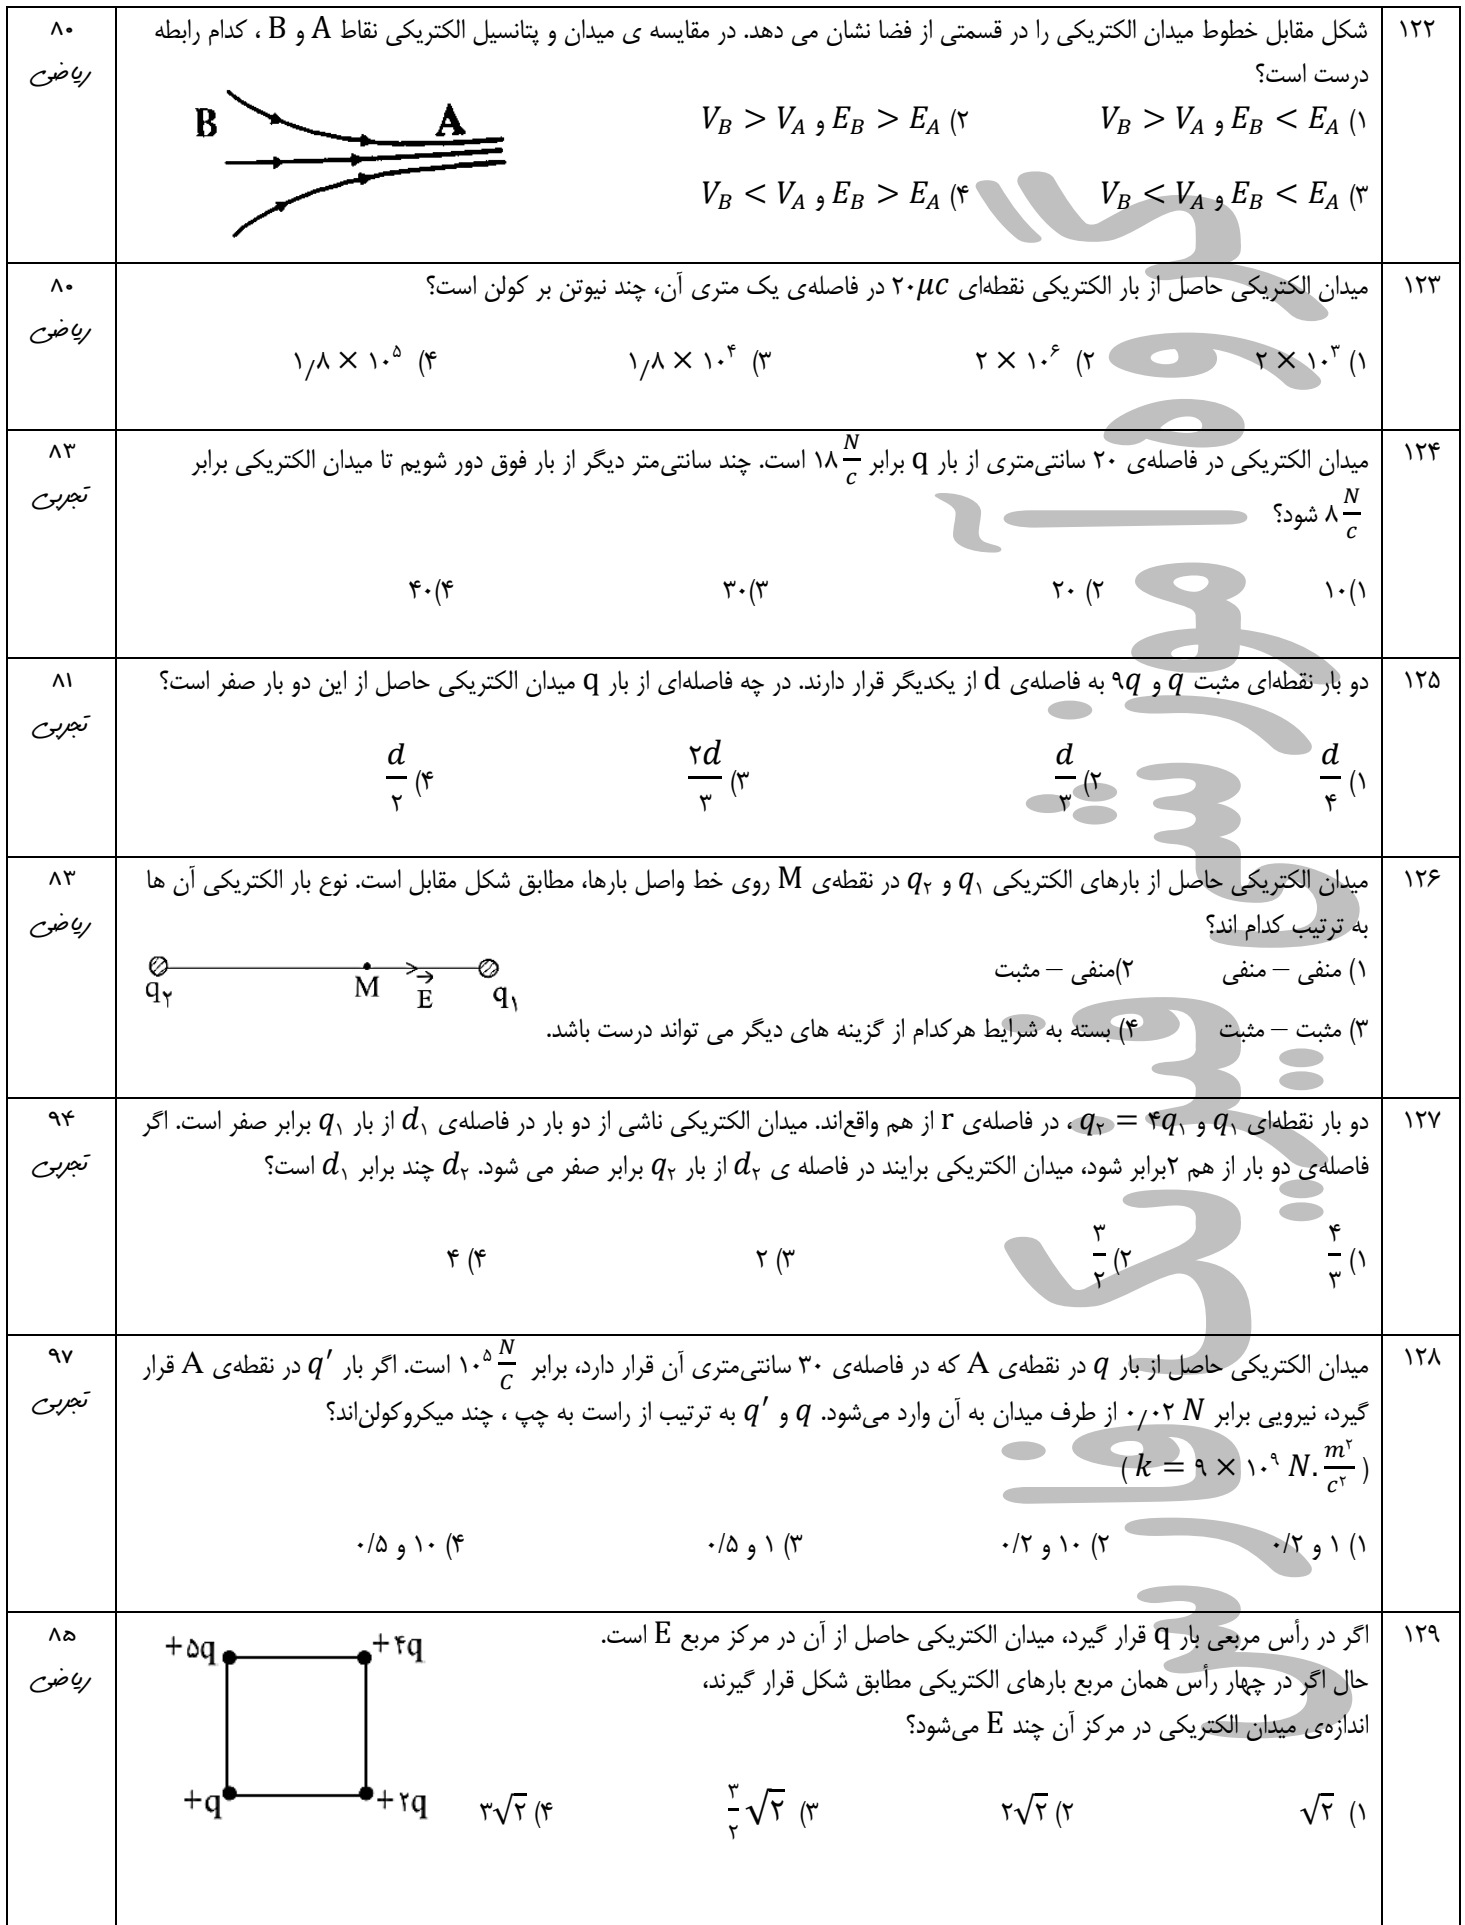 ۱۲۲
شکل مقابل خطوط میدان الکتریکی را در قسمتی از فضا نشان می دهد. در مقایسه ی میدان و پتانسیل الکتریکی نقاط A و B ، کدام رابطه
درست است؟
۱) E_B < E_A و V_B > V_A
۲) E_B > E_A و V_B > V_A
۳) E_B < E_A و V_B < V_A
۴) E_B > E_A و V_B < V_A
B
A
۸۰
ریاضی
۱۲۳
میدان الکتریکی حاصل از بار الکتریکی نقطه‌ای ۲۰μc در فاصله‌ی یک متری آن، چند نیوتن بر کولن است؟
۱) ۲ × ۱۰^۳
۲) ۲ × ۱۰^۶
۳) ۱/۸ × ۱۰^۴
۴) ۱/۸ × ۱۰^۵
۸۰
ریاضی
۱۲۴
میدان الکتریکی در فاصله‌ی ۲۰ سانتی‌متری از بار q برابر ۱۸ N/c است. چند سانتی‌متر دیگر از بار فوق دور شویم تا میدان الکتریکی برابر
۸ N/c شود؟
۱)۱۰
۲) ۲۰
۳)۳۰
۴)۴۰
۸۳
تجربی
۱۲۵
دو بار نقطه‌ای مثبت q و ۹q به فاصله‌ی d از یکدیگر قرار دارند. در چه فاصله‌ای از بار q میدان الکتریکی حاصل از این دو بار صفر است؟
۱) d/۴
۲) d/۳
۳) ۲d/۳
۴) d/۲
۸۱
تجربی
۱۲۶
میدان الکتریکی حاصل از بارهای الکتریکی q۱ و q۲ در نقطه‌ی M روی خط واصل بارها، مطابق شکل مقابل است. نوع بار الکتریکی آن ها
به ترتیب کدام اند؟
۱) منفی – منفی
۲)منفی – مثبت
۳) مثبت – مثبت
۴) بسته به شرایط هرکدام از گزینه های دیگر می تواند درست باشد.
q۲
M
E
q۱
۸۳
ریاضی
۱۲۷
دو بار نقطه‌ای q۱ و q۲ = ۴q۱ ، در فاصله‌ی r از هم واقع‌اند. میدان الکتریکی ناشی از دو بار در فاصله‌ی d۱ از بار q۱ برابر صفر است. اگر
فاصله‌ی دو بار از هم ۲برابر شود، میدان الکتریکی برایند در فاصله ی d۲ از بار q۲ برابر صفر می شود. d۲ چند برابر d۱ است؟
۱) ۴/۳
۲) ۳/۲
۳) ۲
۴) ۴
۹۴
تجربی
۱۲۸
میدان الکتریکی حاصل از بار q در نقطه‌ی A که در فاصله‌ی ۳۰ سانتی‌متری آن قرار دارد، برابر ۱۰^۵ N/C است. اگر بار q′ در نقطه‌ی A قرار
گیرد، نیرویی برابر ۰/۰۲ N از طرف میدان به آن وارد می‌شود. q و q′ به ترتیب از راست به چپ ، چند میکروکولن‌اند؟
( k = ۹ × ۱۰^۹ N.m^۲/c^۲ )
۱) ۱ و ۰/۲
۲) ۱۰ و ۰/۲
۳) ۱ و ۰/۵
۴) ۱۰ و ۰/۵
۹۷
تجربی
۱۲۹
اگر در رأس مربعی بار q قرار گیرد، میدان الکتریکی حاصل از آن در مرکز مربع E است.
حال اگر در چهار رأس همان مربع بارهای الکتریکی مطابق شکل قرار گیرند،
اندازه‌ی میدان الکتریکی در مرکز آن چند E می‌شود؟
۱) √۲
۲) ۲√۲
۳) ۳/۲ √۲
۴) ۳√۲
+۵q
+۴q
+q
+۲q
۸۵
ریاضی